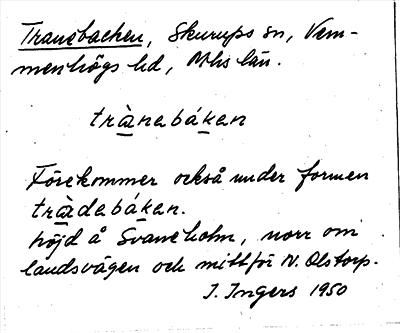 Tranebacken, Skurups sn, Vem-
menhögs hd, Mhs län.
trànabákan
Förekommer också under formen
tràdabákan.
höjd å Svaneholm, norr om
landsvägen och mittför N. Olstorp.
I. Ingers 1950